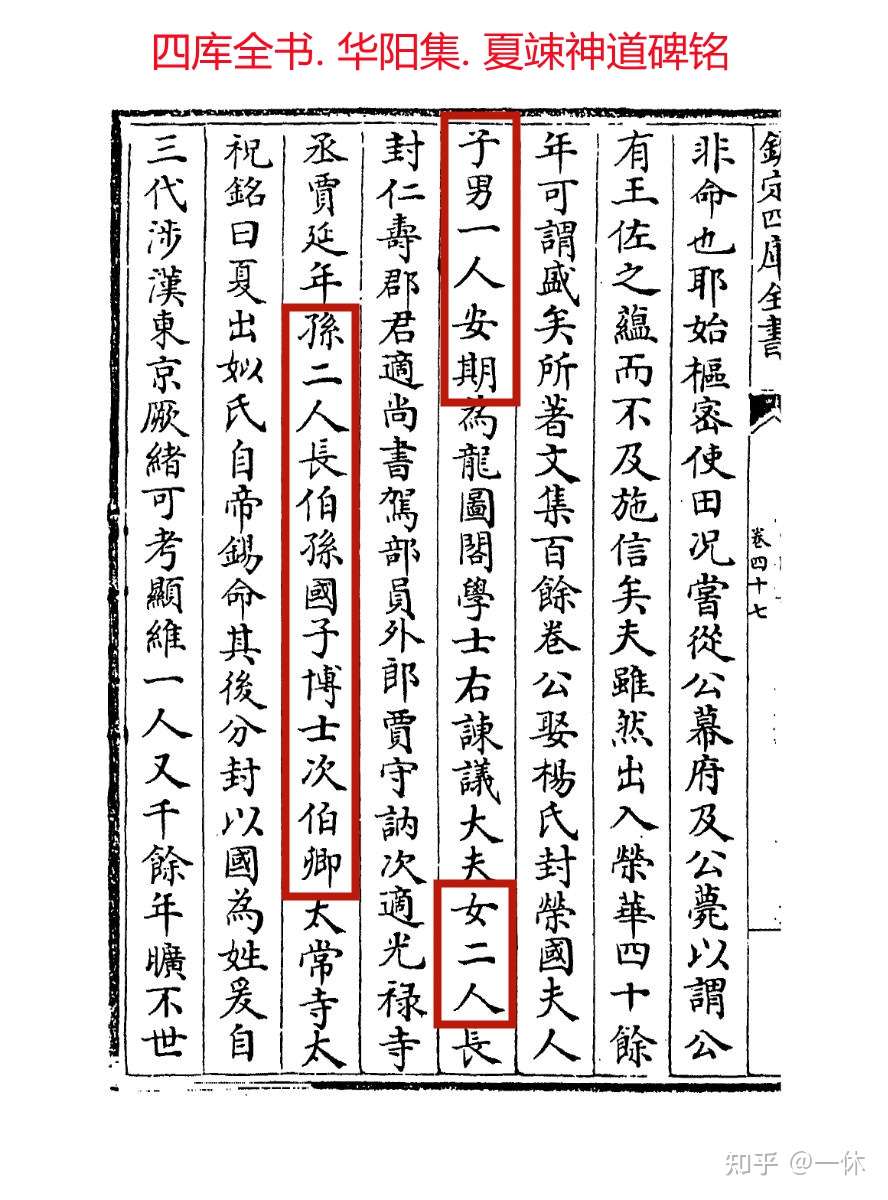 四库全书. 华阳集. 夏竦神道碑铭
欽定四庫全書
卷四十七
非命也耶始樞密使田况嘗從公幕府及公薨以謂公
有王佐之蘊而不及施信矣夫雖然出入榮華四十餘
年可謂盛矣所著文集百餘卷公娶楊氏封榮國夫人
子男一人安期為龍圖閣學士右諫議大夫女二人長
封仁壽郡君適尚書駕部員外郎賈守訥次適光禄寺
丞賈延年孫二人長伯孫國子博士次伯卿太常寺太
祝銘曰夏出姒氏自帝錫命其後分封以國為姓爰自
三代涉漢東京厥緒可考顯維一人又千餘年曠不世
知乎 @一休